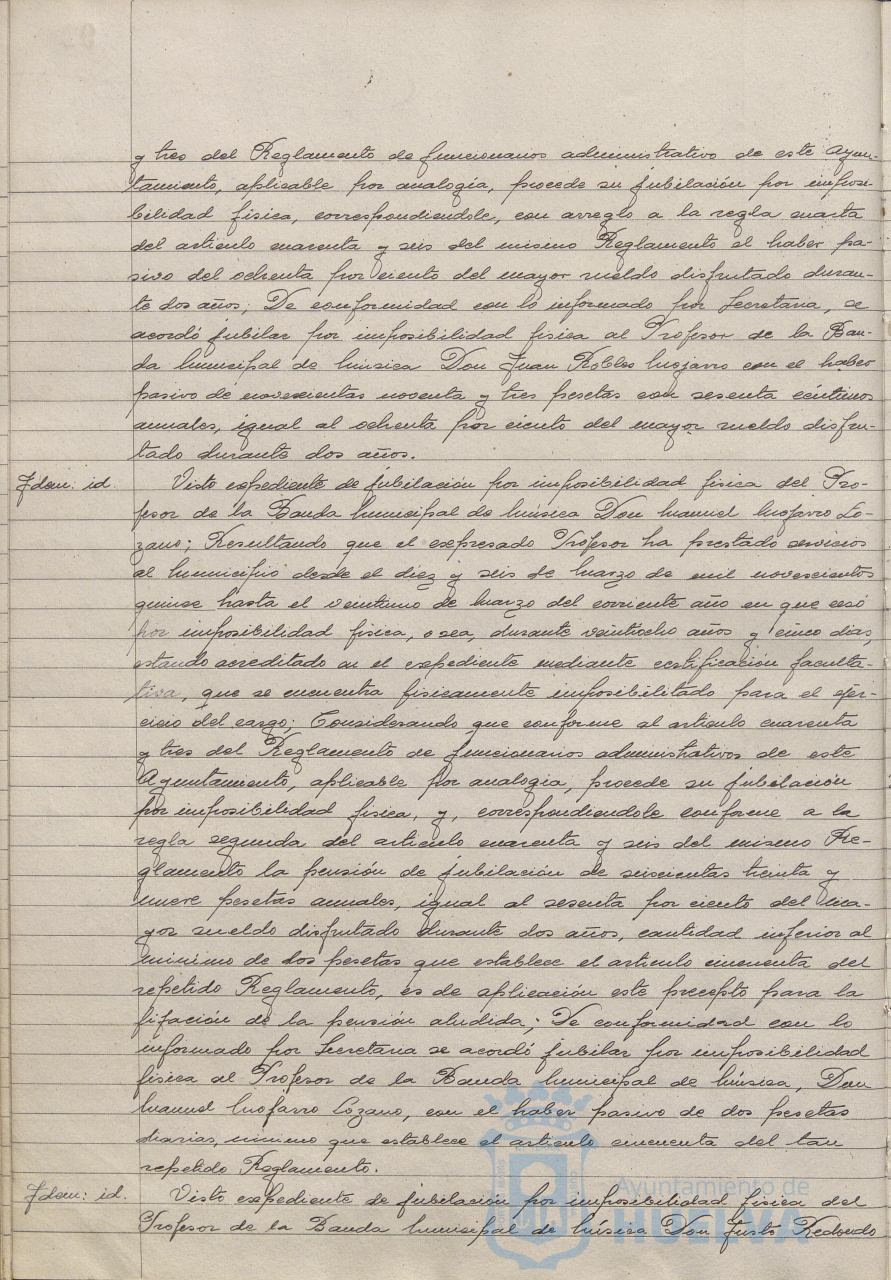 y tres del Reglamento de funcionarios administrativo de este Ayun-
tamiento, aplicable por analogía, procede su jubilación por imposi-
bilidad física, correspondiendole, con arreglo a la regla cuarta
del articulo cuarenta y seis del mismo Reglamento el haber pa-
sivo del ochenta por ciento del mayor sueldo disfrutado duran-
te dos años; De conformidad con lo informado por Secretaria, se
acordó jubilar por imposibilidad fisica al Profesor de la Ban-
da Municipal de Música Don Juan Robles Mojarro con el haber
pasivo de novecientas noventa y tres pesetas con sesenta céntimos
anuales, igual al ochenta por ciento del mayor sueldo disfru-
tado durante dos años.
Idem: id. Visto expediente de jubilación por imposibilidad fisica del Pro-
fesor de la Banda Municipal de Música Don Manuel Mojarro Lo-
zano; Resultando que el expresado Profesor ha prestado servicios
al Municipio desde el diez y seis de Marzo de mil novescientos
quinse hasta el veintuno de Marzo del corriente año en que cesó
por imposibilidad fisica, o sea, durante veintiocho años y cinco dias,
estando acreditado en el expediente mediante certificación faculta-
tiva, que se encuentra fisicamente imposibilitado para el ejer-
cicio del cargo; Considerando que conforme al articulo cuarenta
y tres del Reglamento de funcionarios administrativos de este
Ayuntamiento, aplicable por analogia, procede su jubilación
por imposibilidad fisica, y, correspondiendole conforme a la
regla segunda del articulo cuarenta y seis del mismo Re-
glamento la pensión de jubilación de seiscientas treinta y
nueve pesetas anuales, igual al sesenta por ciento del ma-
yor sueldo disfrutado durante dos años, cantidad inferior al
minimo de dos pesetas que establece el articulo cincuenta del
repetido Reglamento, es de aplicación este precepto para la
fijación de la pensión aludida; De conformidad con lo
informado por Secretaria se acordó jubilar por imposibilidad
fisica al Profesor de la Banda Municipal de Música, Don
Manuel Mojarro Lozano, con el haber pasivo de dos pesetas
diarias, minimo que establece el articulo cincuenta del tan
repetido Reglamento.
Idem: id. Visto expediente de jubilación por imposibilidad fisica del
Profesor de la Banda Municipal de Música Don Justo Redondo
Ayuntamiento de
HUELVA